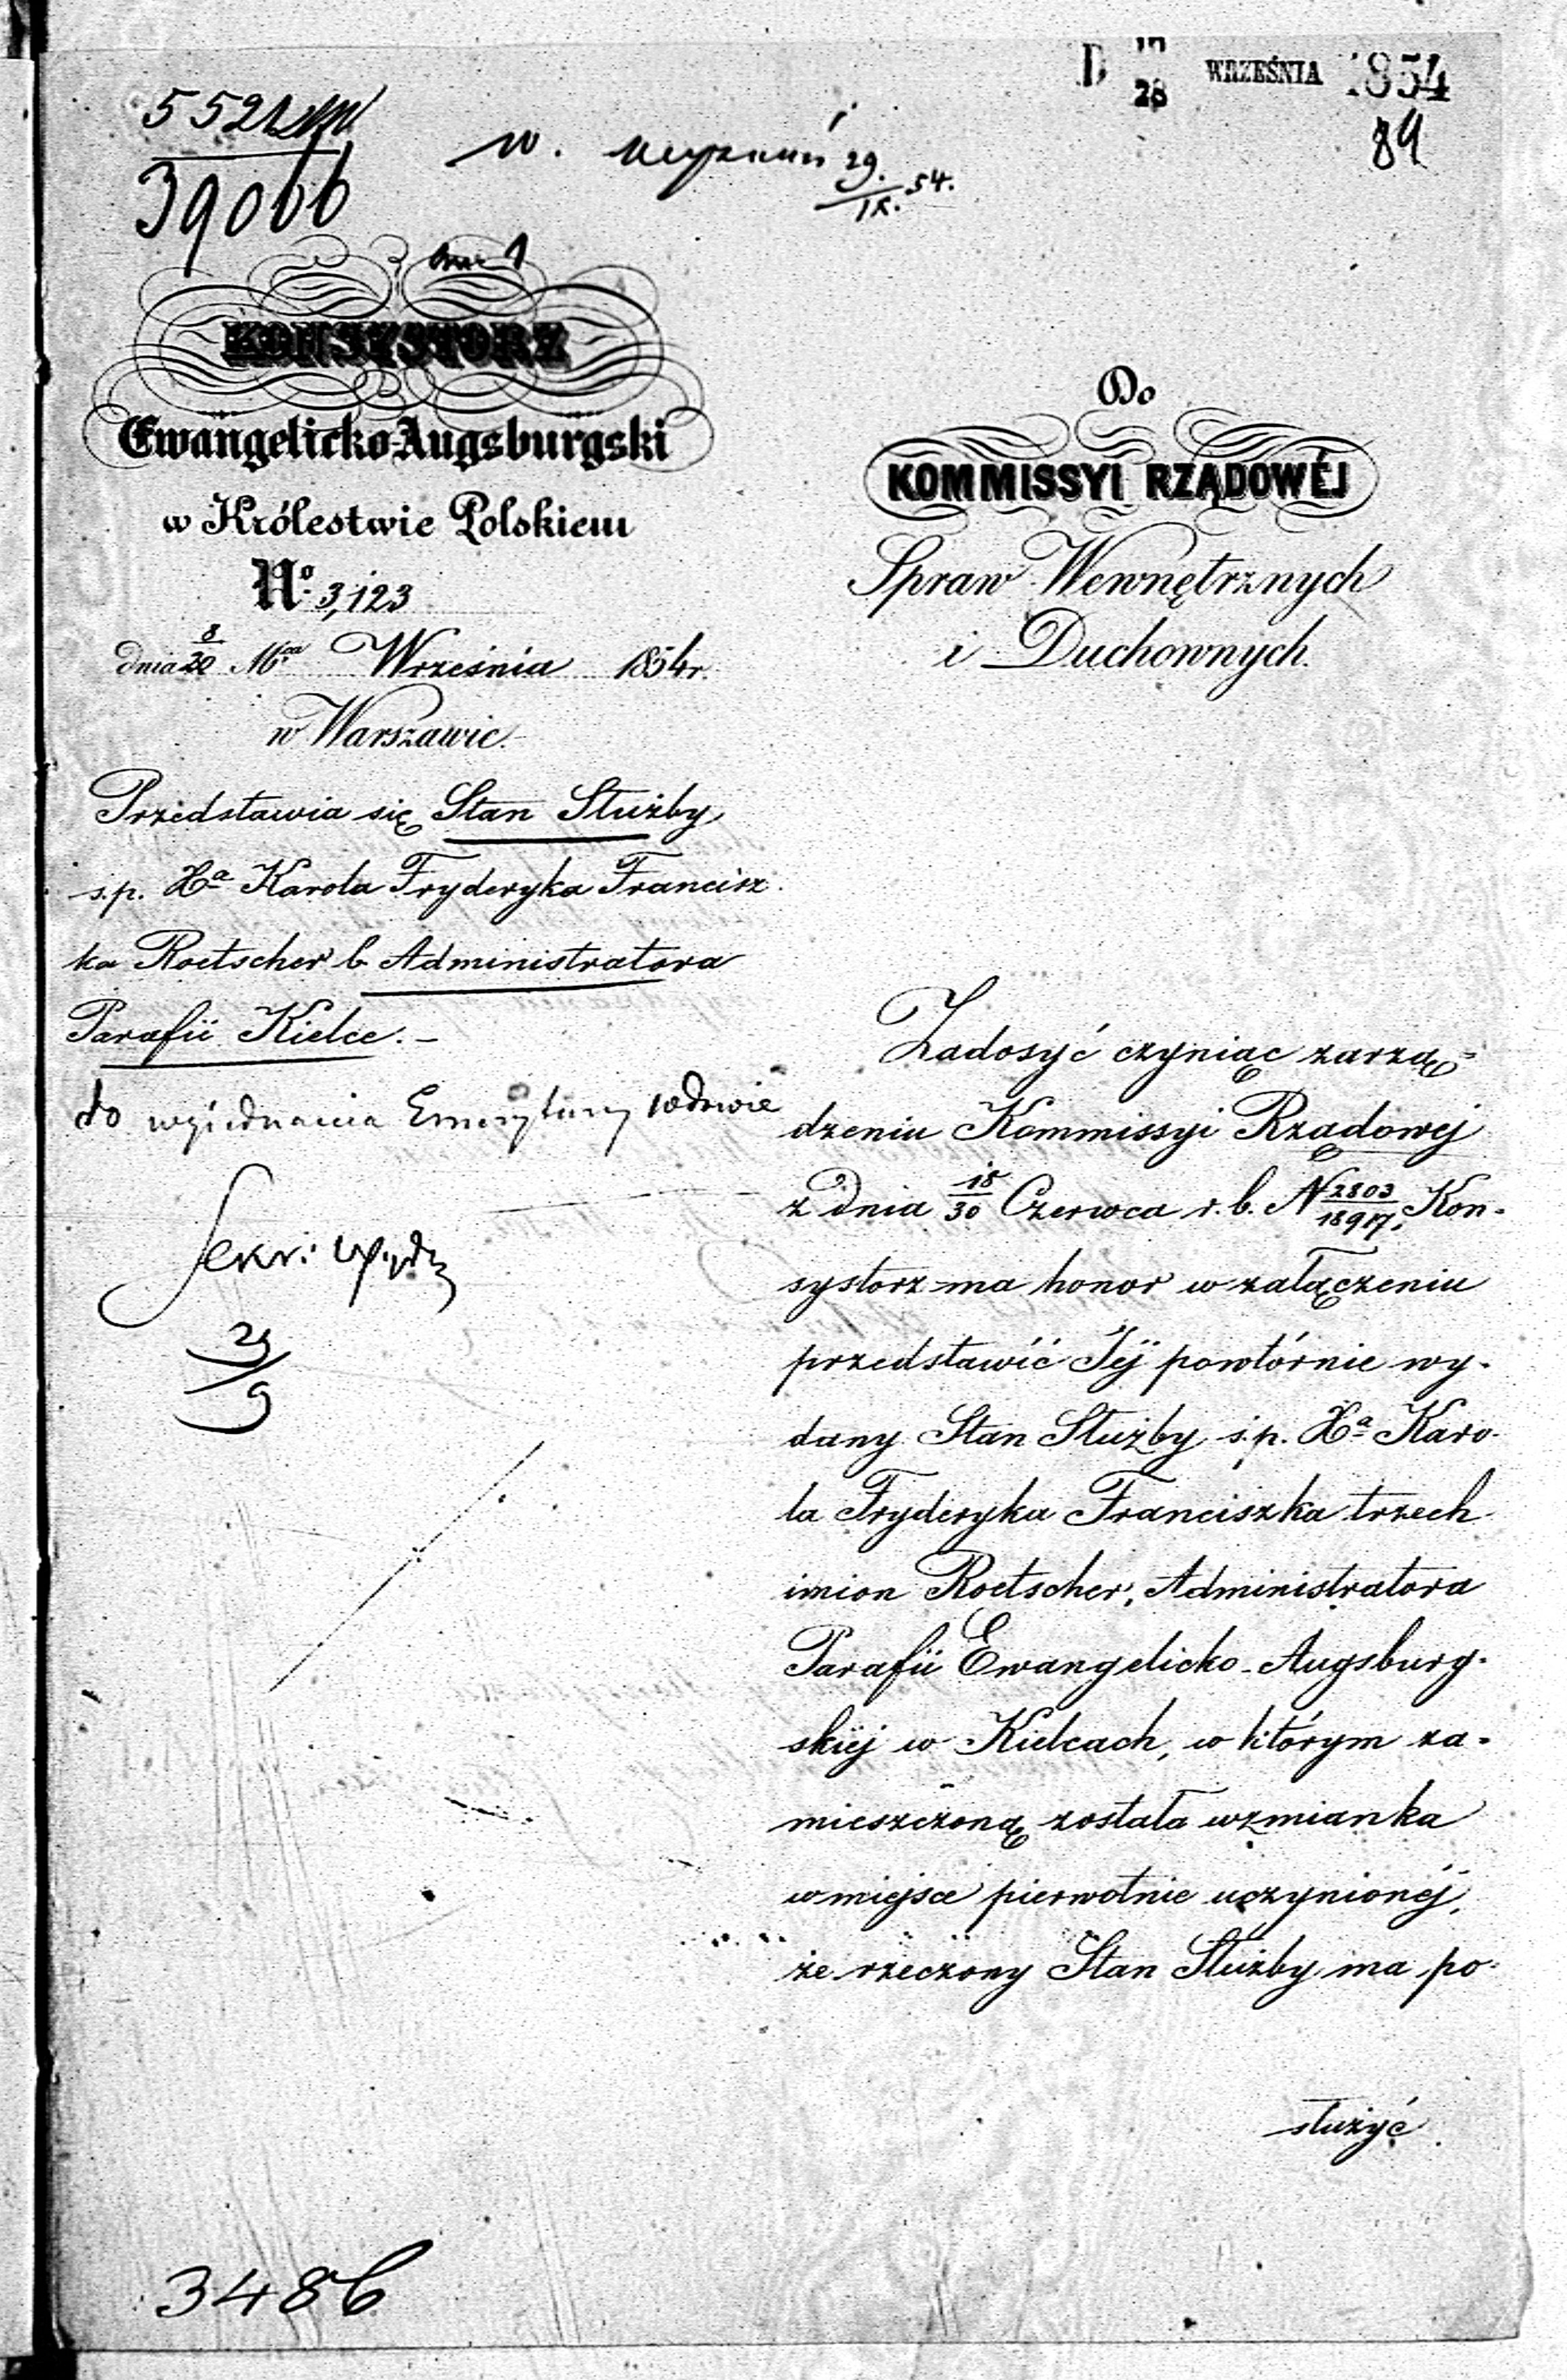 D 17/28 WRZEŚNIA 1854
89
552
39066
w. 29./IX. 54.
KONSYSTORZ
Ewangelicko Augsburgski
w Królestwie Polskiem
No. 3,123
dnia 8/20 Mca Września 1854 r.
w Warszawie.
Przedstawia się Stan Służby
ś.p. Xa Karola Fryderyka Francisz
ka Roetscher b. Administratora
Parafii Kielce. –
do wyjednania Emerytury wdowie
Sekr:
29/9
Do
KOMMISSYI RZĄDOWÉJ
Spraw Wewnętrznych
i Duchownych.
Zadosyć czyniąc zarzą=
dzeniu Kommissyi Rządowej
z dnia 18/30 Czerwca r. b. N 2803/18917, Kon-
systorz ma honor w załączeniu
przedstawić Jéj powtórnie wy-
dany Stan Służby ś.p. Xa Karo-
la Fryderyka Franciszka trzech
imion Roetscher, Administratora
Parafii Ewangelicko-Augsburg-
skiéj w Kielcach, w którym za-
mieszczoną została wzmianka
w miejsce pierwotnie uczynionéj,
że rzeczony Stan Służby ma po-
służyć
3486